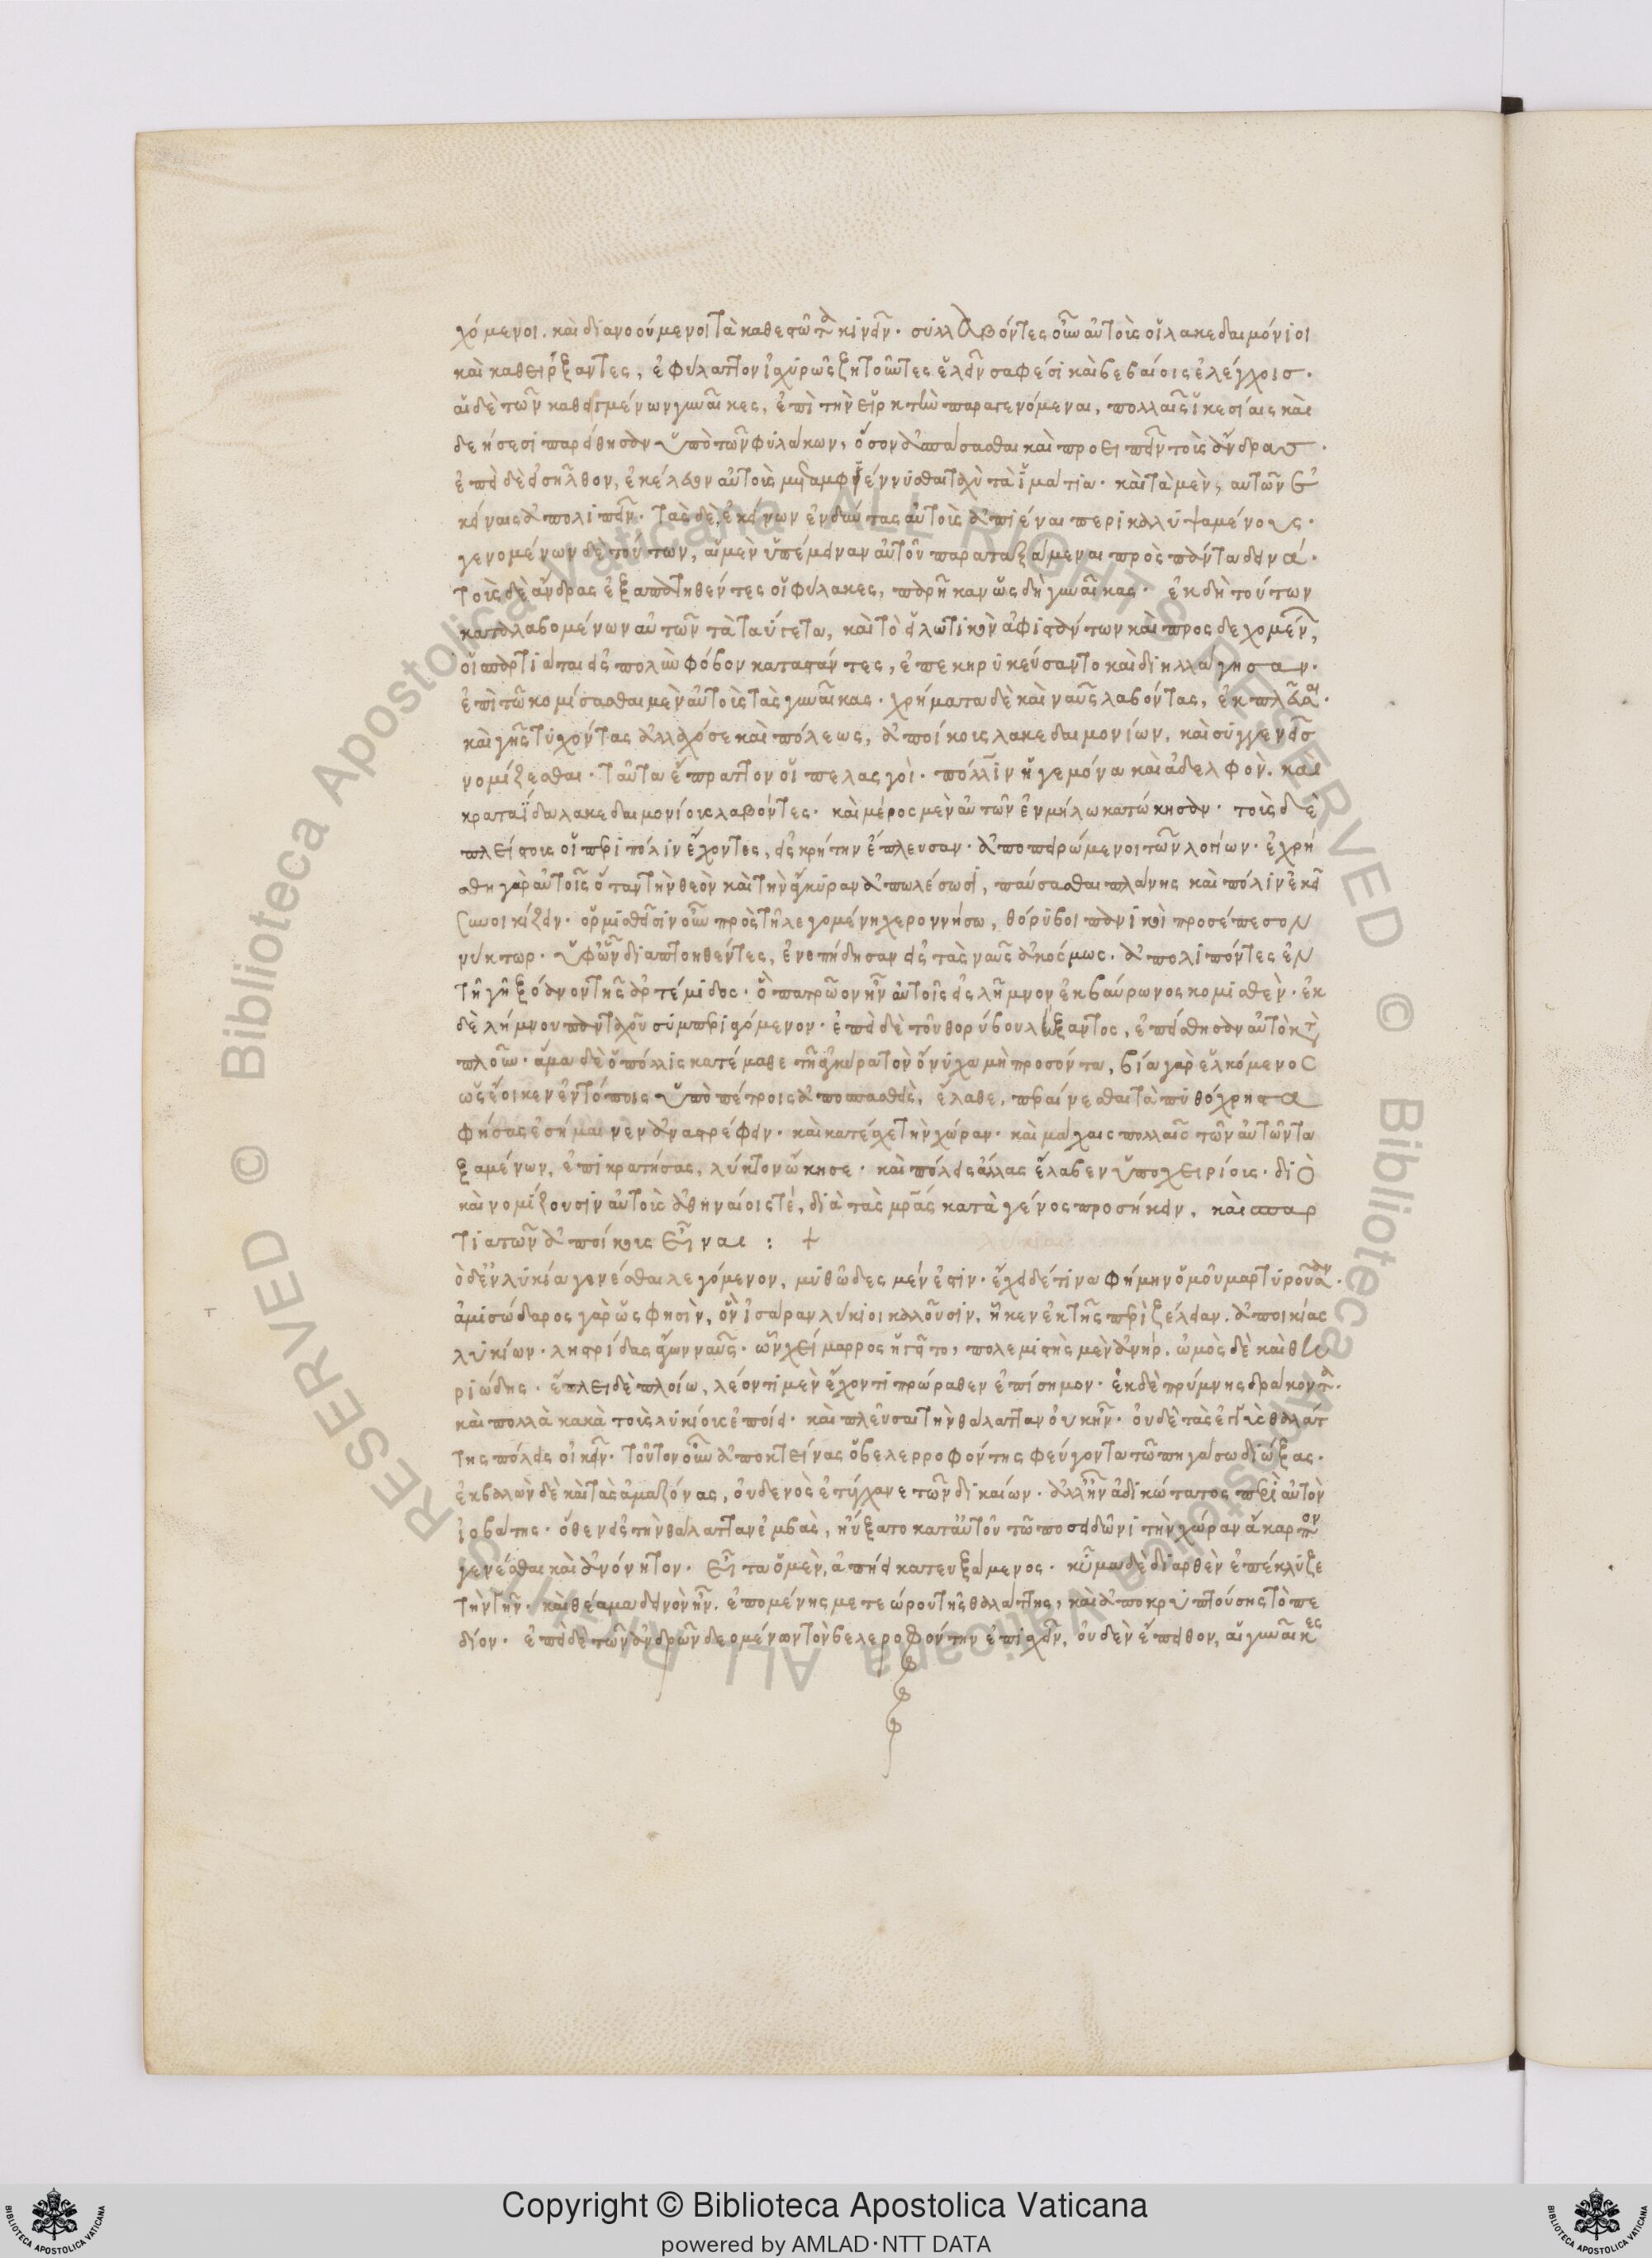 χόμενοι. καὶ διανοούμενοι τὰ καθεστῶτα κινεῖν· συλλαβόντες οὖν αὐτοὺς οἱ λακεδαιμόνιοι
καὶ καθείρξαντες, ἐφύλαττον ἰσχυρῶς ζητοῦντες ἑλεῖν σαφέσι καὶ βεβαίοις ἐλέγχοις·
αἱ δὲ τῶν καθειργμένων γυναῖκες, ἐπὶ τὴν εἱρκτὴν παραγενόμεναι, πολλαῖς ἱκεσίαις καὶ
δεήσεσι παρείθησαν ὑπὸ τῶν φυλάκων, ὅσον ἀσπάσασθαι καὶ προσειπεῖν τοὺς ἄνδρας·
ἐπεὶ δὲ εἰσῆλθον, ἐκέλευον αὐτοὺς μεταμφιέννυσθαι ταχὺ τὰ ἱμάτια· καὶ τὰ μὲν, αὐτῶν ἐ
κείναις ἀπολιπεῖν· τὰς δὲ, ἐκείνων ἐνδύντας αὐτοὺς ἀπιέναι περικαλυψαμένους·
γενομένων δὲ τούτων, αἱ μὲν ὑπέμειναν αὐτοῦ παραταξάμεναι πρὸς πάντα δεινά·
τοὺς δὲ ἄνδρας ἐξαπατηθέντες οἱ φύλακες, παρῆκαν ὡς δὴ γυναῖκας· ἐκ δὴ τούτων
καταλαβομένων αὐτῶν τὰ ταΰγετα, καὶ τὸ εἱλωτικὸν ἀφιστάντων καὶ προσδεχομένων,
οἱ σπαρτιᾶται εἰς πολὺν φόβον καταστάντες, ἐπεκηρυκεύσαντο καὶ διηλλάγησαν·
ἐπὶ τῶ κομίσασθαι μὲν αὐτοὺς τὰς γυναῖκας· χρήματα δὲ καὶ ναῦς λαβόντας, ἐκπλεῦσαι·
καὶ γῆς τυχόντας ἀλλαχόσε καὶ πόλεως, ἀποίκους λακεδαιμονίων, καὶ συγγενεῖς
νομίζεσθαι· ταῦτα ἔπραττον οἱ πελασγοὶ· πόλλιν ἡγεμόνα καὶ ἀδελφὸν. καὶ
κραταΐδα λακεδαιμονίους λαβόντες· καὶ μέρος μὲν αὐτῶν ἐν μήλω κατώκησαν· τοὺς δὲ
πλείστους οἱ περὶ πόλιν ἔχοντες, εἰς κρήτην ἔπλευσαν· ἀποπειρώμενοι τῶν λογίων· ἐχρή
σθη γὰρ αὐτοῖς ὅταν τὴν θεὸν καὶ τὴν ἄγκυραν ἀπωλέσωσι, παύσασθαι πλάνης καὶ πόλιν ἐκεῖ
συνοικίζειν· ὁρμισθεῖσιν οὖν πρὸς τῆ λεγομένη χερονήσω, θόρυβοι πανικοὶ προσέπεσον
νύκτωρ· ὑφ' ὧν διαπτοηθέντες, ἐνεπήδησαν εἰς τὰς ναῦς ἀκόσμως· ἀπολιπόντες ἐν
τῆ γῆ ξόανον τῆς ἀρτέμιδος· ὃ πατρῶον ἦν αὐτοῖς εἰς λῆμνον ἐκ βραύρωνος κομισθὲν· ἐκ
δὲ λήμνου πανταχοῦ συμπεριαγόμενον· ἐπεὶ δὲ τοῦ θορύβου λήξαντος, ἐπόθησαν αὐτὸ κατὰ
πλοῦν· ἅμα δὲ ὁ πόλλις κατέμαθε τῆ ἀγκύρα τὸν ὄνυχα μὴ προσόντα, βία γὰρ ἑλκόμενος
ὡς ἔοικεν ἐν τόποις ὑποπέτροις ἀποσπασθεὶς, ἔλαθε, περαίνεσθαι τὰ πυθόχρηστα
φήσας ἐσήμαινεν ἀναστρέφειν· καὶ κατέσχε τὴν χώραν· καὶ μάχαις πολλαῖς τῶν ἀντιτα
ξαμένων, ἐπικρατήσας, λύκτον ᾤκησε· καὶ πόλεις ἄλλας ἔλαβεν ὑποχειρίους· διὸ
καὶ νομίζουσιν αὑτοὺς ἀθηναίοις τέ, διὰ τὰς μητέρας κατὰ γένος προσήκειν, καὶ σπαρ
τιατῶν ἀποίκους εἶναι : +
ὃ δὲ ἐν λυκία γενέσθαι λεγόμενον, μυθῶδες μέν ἐστιν· ἔχει δέ τινα φήμην ὁμοῦ μαρτυροῦσαν·
ἀμισώδαρος γὰρ ὥς φησὶν, ὃν ἰσάραν λύκιοι καλοῦσιν, ἧκεν ἐκ τῆς περὶ ζέλειαν ἀποικίας
λυκίων· ληστρίδας ἄγων ναῦς· ὧν χείμαρρος ἡγεῖτο, πολεμιστὴς μὲν ἀνήρ, ὠμὸς δὲ καὶ θη
ριώδης· ἔπλει δὲ πλοίω, λέοντι μὲν ἔχοντι πρώραθεν ἐπίσημον· ἐκ δὲ πρύμνης δράκοντα·
καὶ πολλὰ κακὰ τοὺς λυκίους ἐποίει· καὶ πλεῦσαι τὴν θάλατταν οὐκ ἦν· οὐδὲ τὰς ἐγγὺς θαλάτ
της πόλεις οἰκεῖν· τοῦτον οὖν ἀποκτείνας ὁ βελερροφόντης φεύγοντα τῶ πηγάσω διώξας·
ἐκβαλὼν δὲ καὶ τὰς ἀμαζόνας, οὐδενὸς ἐτύγχανε τῶν δικαίων· ἀλλ' ἦν ἀδικώτατος περὶ αὐτὸν
ἰοβάτης· ὅθεν εἰς τὴν θάλατταν ἐμβὰς, ηὔξατο κατ' αὐτοῦ τῶ ποσειδῶνι τὴν χώραν ἄκαρπον
γενέσθαι καὶ ἀνόνητον· εἶτα ὁ μὲν, ἀπήει κατευξάμενος· κῦμα δὲ διαρθὲν ἐπέκλυζε
τὴν γῆν· καὶ θέαμα δεινὸν ἦν, ἑπομένης μετεώρου τῆς θαλάττης, καὶ ἀποκρυπτούσης τὸ πε
δίον· ἐπεὶ δὲ τῶν ἀνδρῶν δεομένων τὸν βελεροφόντην ἐπισχεῖν, οὐδὲν ἔπειθον, αἱ γυναῖκες